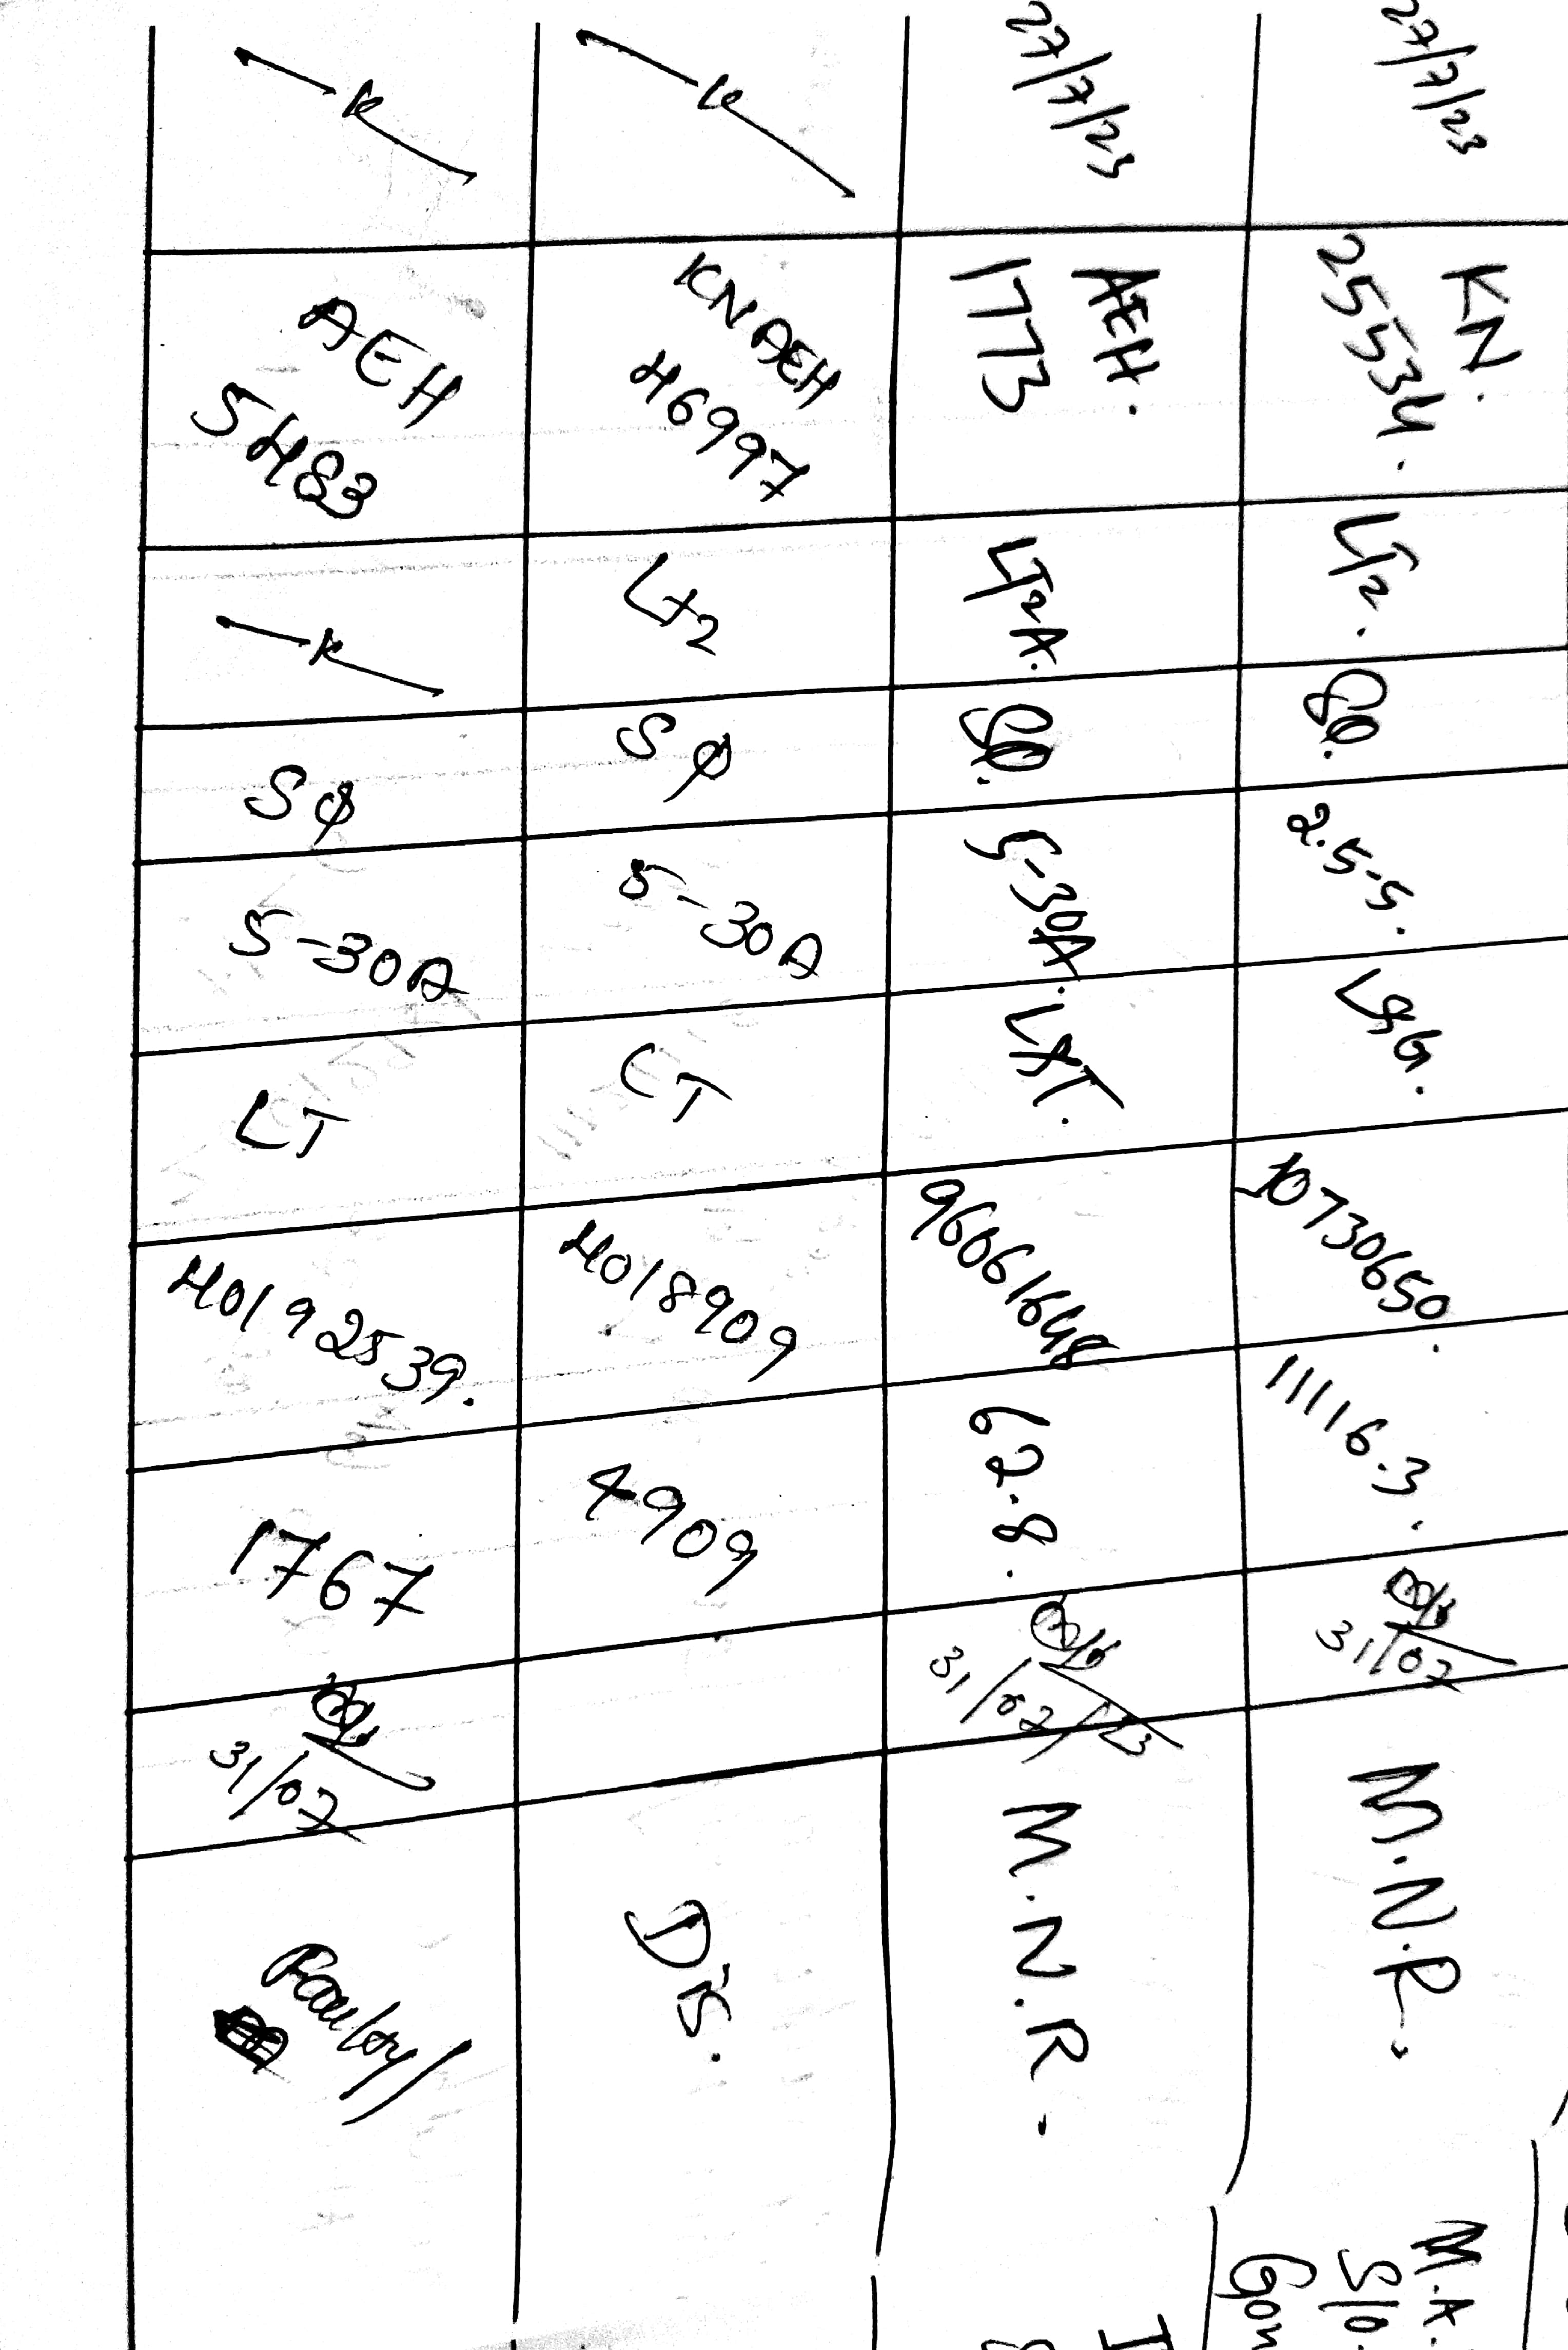 27/7/23
KN.
25534.
LT2.
SΦ.
2.5-5.
L&G.
10730650.
11116.3.
31/07
M.N.R.
27/7/23
AEH.
1773
LT2A.
SΦ.
5-30A.
L&T.
96061648
62.8.
31/07/23
M.N.R.
KNAEH
46997
LT2
SΦ
5-30A
LT
4018909
4909
D's.
AEH
5483
SΦ
5-30A
LT
40192539.
1767
31/07
Faulty/
M.A.
S/o.